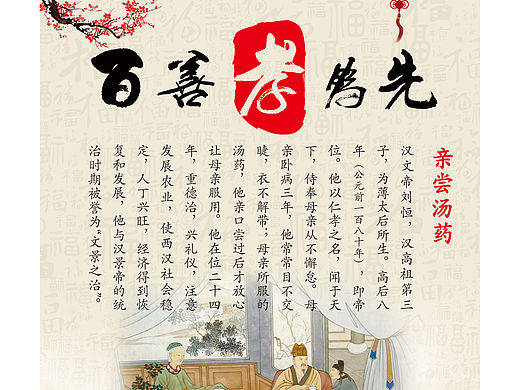 百善孝为先
亲尝汤药
汉文帝刘恒，汉高祖第三
子，为薄太后所生。高后八
年（公元前一百八十年），即帝
位。他以仁孝之名，闻于天
下，侍奉母亲从不懈怠。母
亲卧病三年，他常常目不交
睫，衣不解带；母亲所服的
汤药，他亲口尝过后才放心
让母亲服用。他在位二十四
年，重德治，兴礼仪，注意
发展农业，使西汉社会稳
定，人丁兴旺，经济得到恢
复和发展，他与汉景帝的统
治时期被誉为“文景之治”。